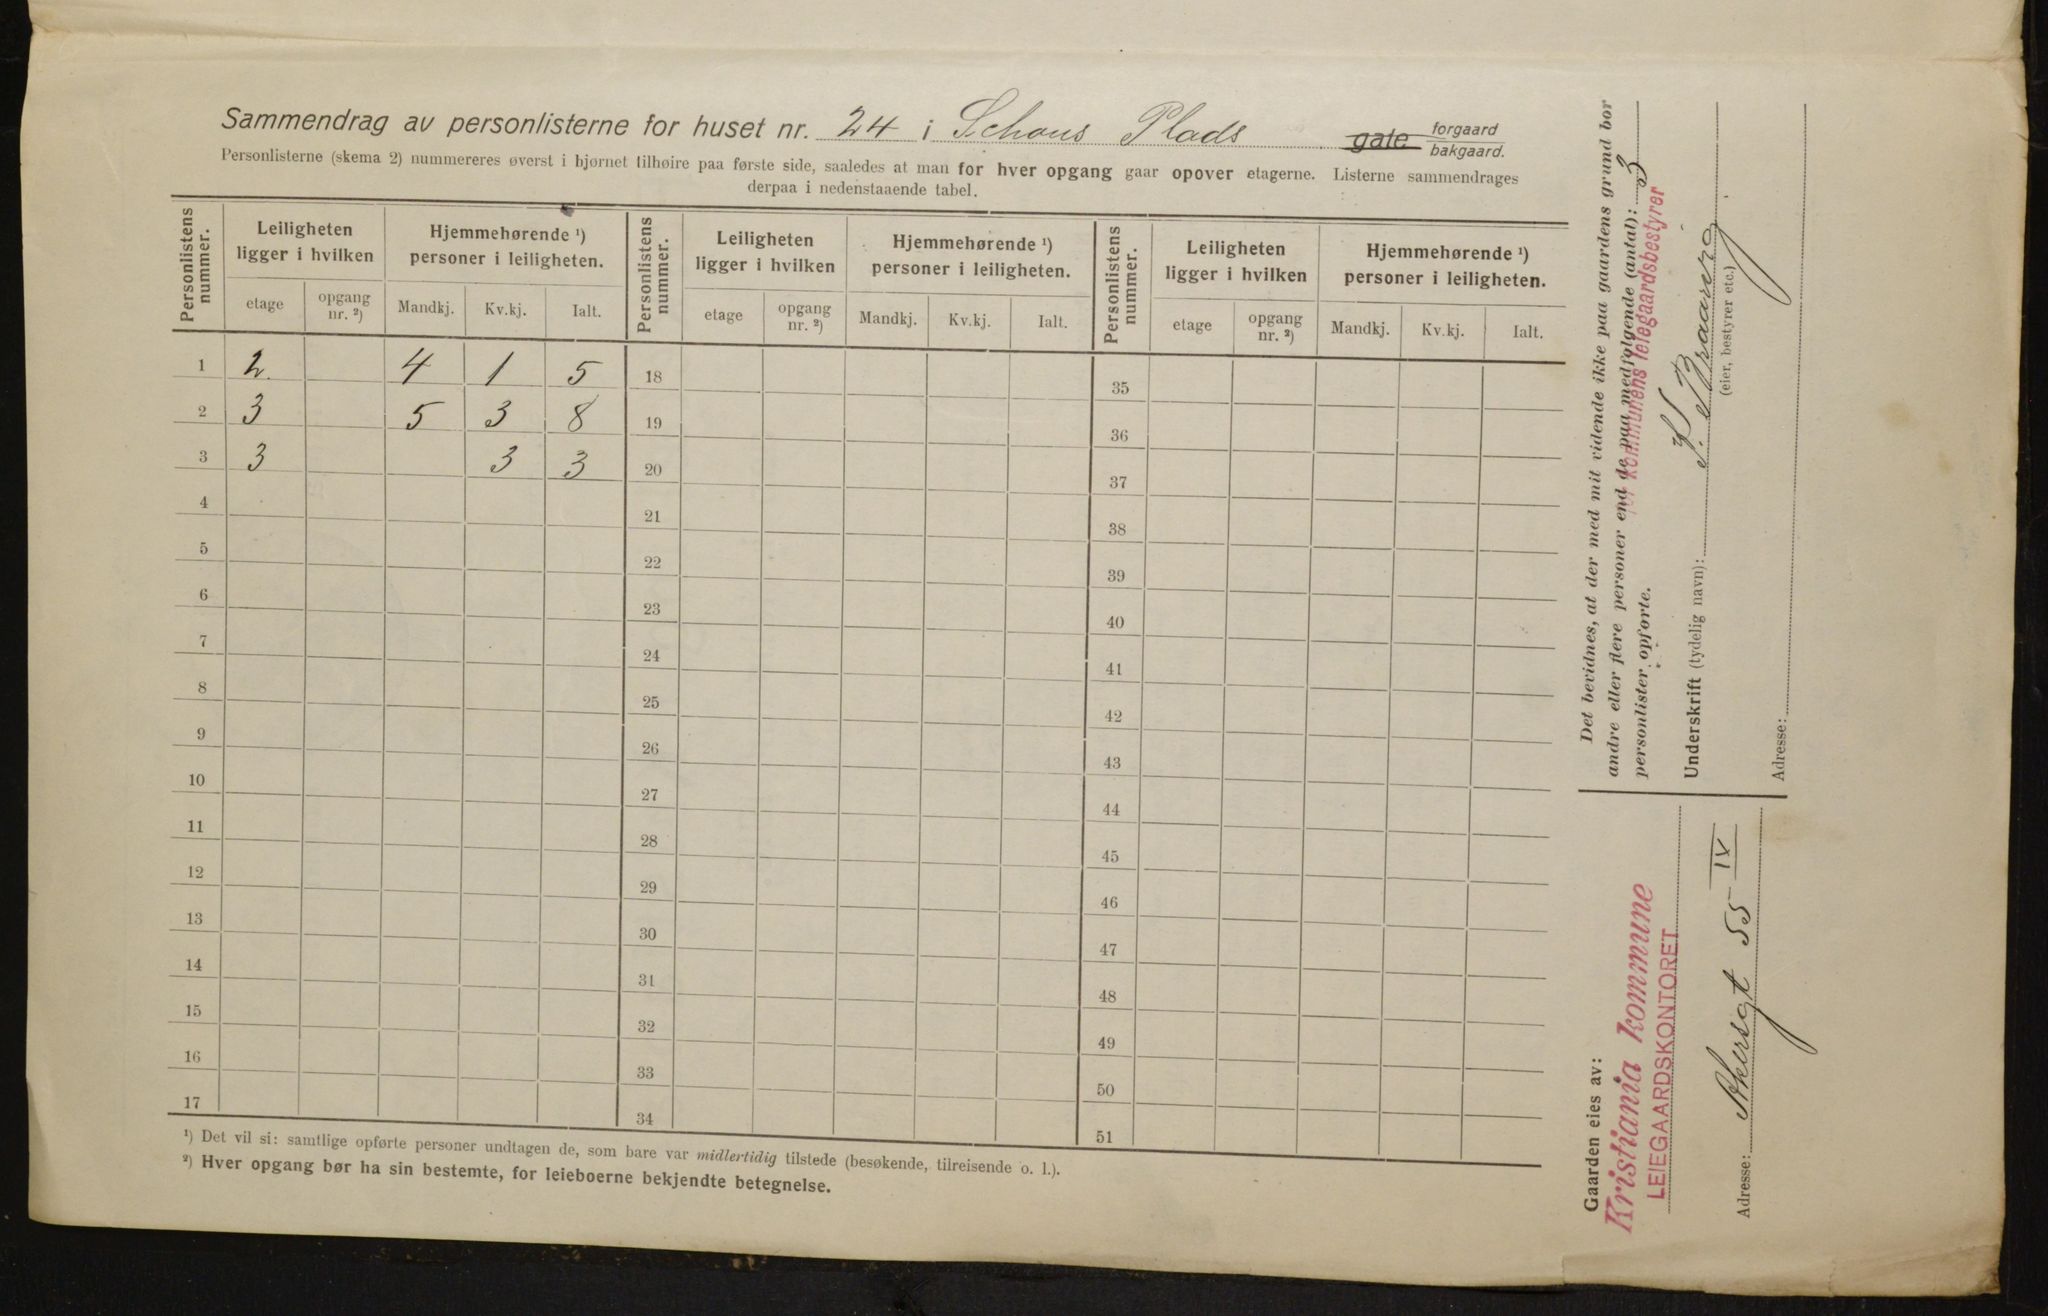 Sammendrag av personlisterne for huset nr. 24 i Schous Plads gate forgaard bakgaard.
Personlisterne (skema 2) nummereres øverst i hjørnet tilhøire paa første side, saaledes at man for hver opgang gaar opover etagerne. Listerne sammendrages
derpaa i nedenstaaende tabel.
Personlistens nummer. Leiligheten ligger i hvilken Hjemmehørende ¹) personer i leiligheten. Personlistens nummer. Leiligheten ligger i hvilken Hjemmehørende ¹) personer i leiligheten. Personlistens nummer. Leiligheten ligger i hvilken Hjemmehørende ¹) personer i leiligheten.
etage opgang nr. ²) Mandkj. Kv.kj. Ialt. etage opgang nr. ²) Mandkj. Kv.kj. Ialt. etage opgang nr. ²) Mandkj. Kv.kj. Ialt.
1 2 4 1 5 18 35
2 3 5 3 8 19 36
3 3 3 3 20 37
4 21 38
5 22 39
6 23 40
7 24 41
8 25 42
9 26 43
10 27 44
11 28 45
12 29 46
13 30 47
14 31 48
15 32 49
16 33 50
17 34 51
¹) Det vil si: samtlige opførte personer undtagen de, som bare var midlertidig tilstede (besøkende, tilreisende o. l.).
²) Hver opgang bør ha sin bestemte, for leieboerne bekjendte betegnelse.
Det bevidnes, at der med mit vidende ikke paa gaardens grund bor
andre eller flere personer end de paa medfølgende (antal): 3
personlister opførte.
kommunens leiegaardsbestyrer
Underskrift (tydelig navn):
(eier, bestyrer etc.)
Adresse:
Gaarden eies av:
Kristiania kommune
LEIEGAARDSKONTORET
Adresse: Akersgt 55 IV